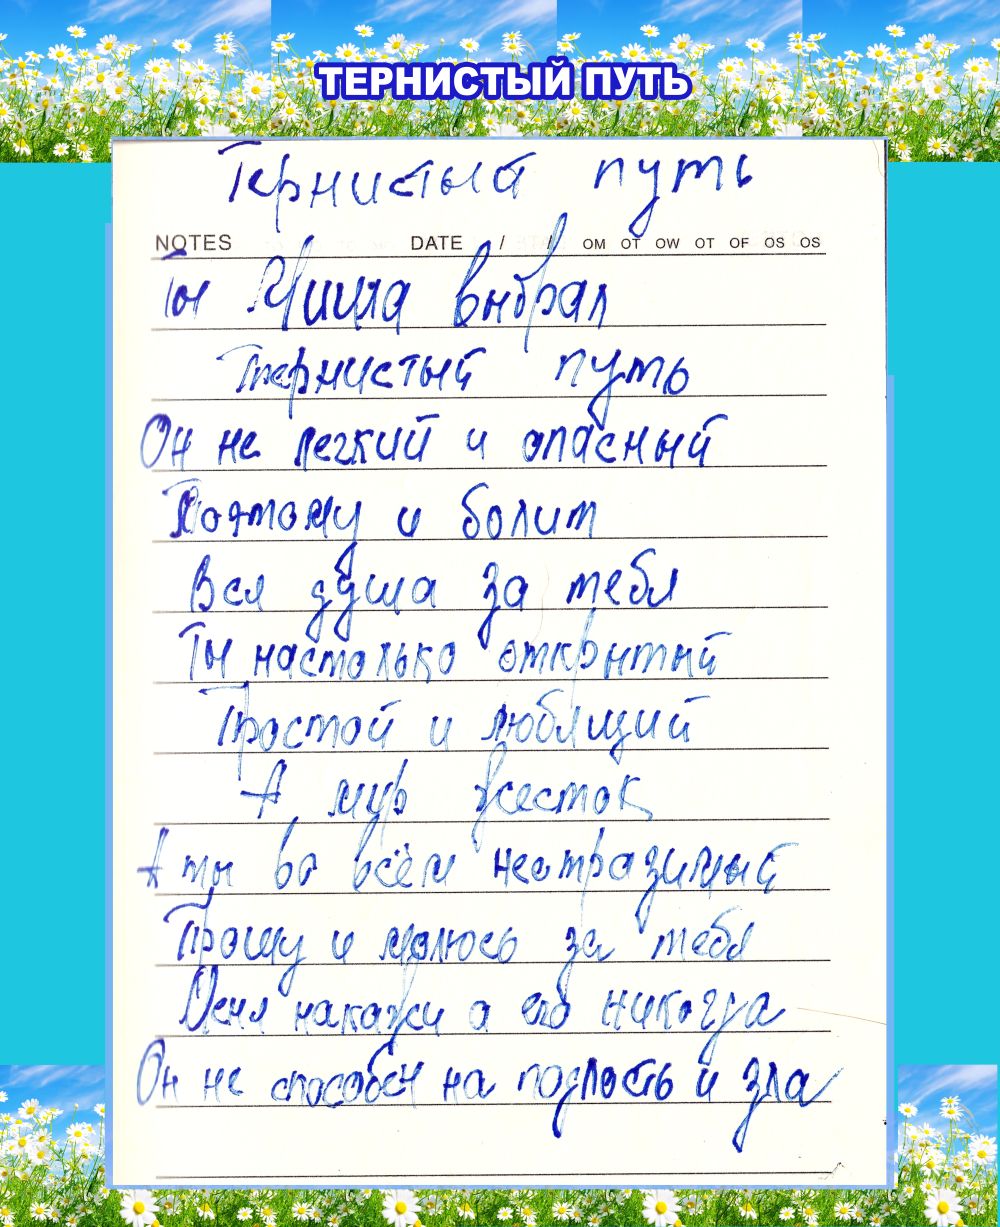 ТЕРНИСТЫЙ ПУТЬ
Тернистый путь
NOTES DATE / / OM OT OW OT OF OS OS
Ты Миша выбрал
Тернистый путь
Он не легкий и опасный
Поэтому и болит
Вся душа за тебя
Ты настолько открытый
Простой и любящий
А мир жесток
А ты во всём неотразимый
Прошу и молюсь за тебя
Меня накажи а его никогда
Он не способен на подлость и зла